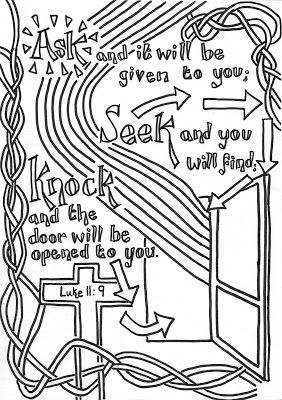 Ask and it will be
given to you;
Seek and you
will find;
Knock
and the
door will be
opened to you.
Luke 11:9